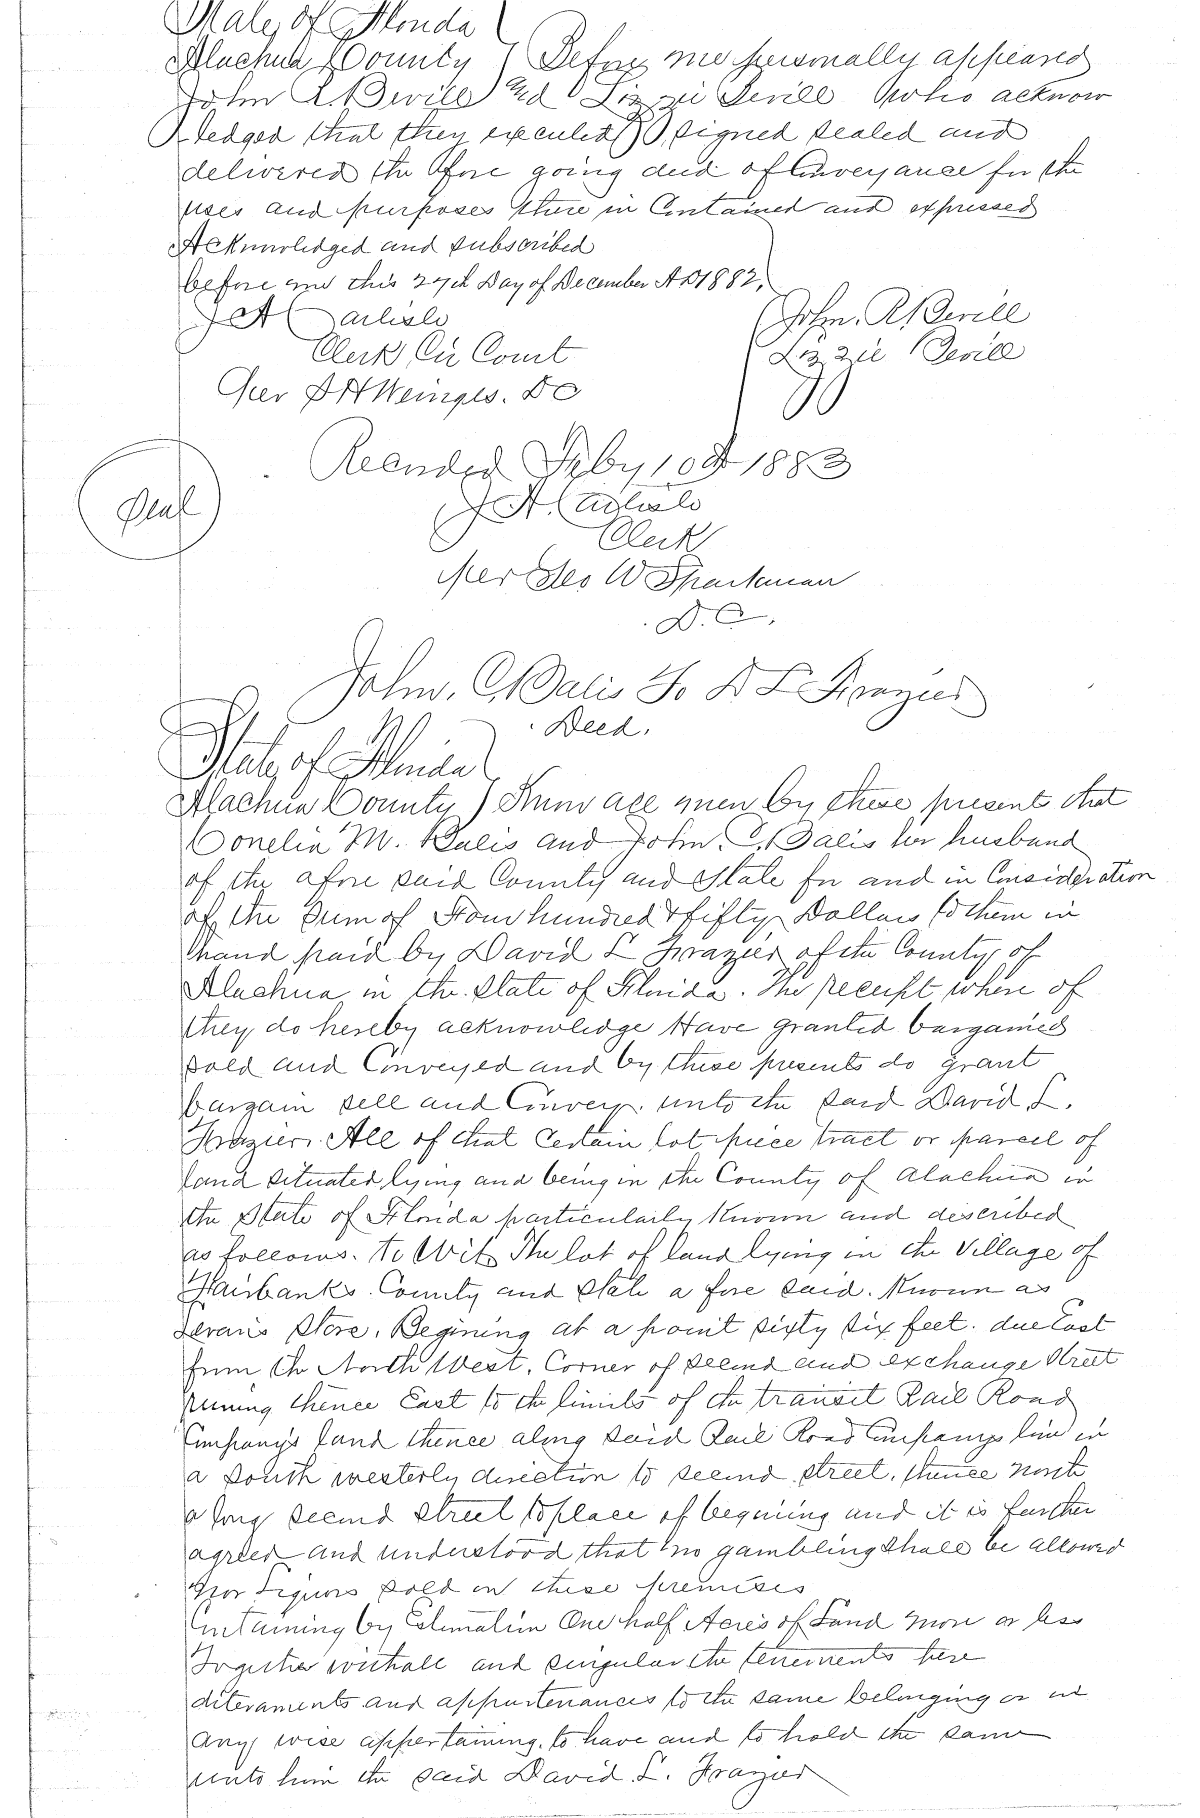 State of Florida
Alachua County } Before me personally appeared
John R Bevill and Lizzie Bevill who acknow
ledged that they executed signed sealed and
delivered the fore going deed of Conveyance for the
uses and purposes there in Contained and expressed
Acknowledged and subscribed
before me this 27th Day of December AD 1882,
J A Carlisle
John. R Bevill
Clerk Cir Court
Lizzie Bevill
Per D C
Recorded Feby 10th 1883
Seal
J A. Carlisle
Clerk
Per Geo W Sparkman
D. C.
John. C. Balis To D L Frazier
Deed.
State of Florida
Alachua County } Know all men by these presents that
Conelia M. Balis and John. C. Balis her husband
of the afore said County and State for and in Consideration
of the Sum of Four hundred & fifty Dollars to them in
hand paid by David L Frazier of the County of
Alachua in the State of Florida. The receipt where of
they do hereby acknowledge Have granted bargained
sold and Conveyed and by these presents do grant
bargain sell and Convey. unto the said David L.
Frazier. All of that Certain lot piece tract or parcel of
land situated lying and being in the County of Alachua in
the State of Florida particularly Known and described
as follows. to Wit The lot of land lying in the Village of
Fairbanks. County and State a fore said. Known as
Store. Begining at a point sixty six feet. due East
from the North West. Corner of second and exchange Street
runing thence East to the limits of the transit Rail Road
Company's land thence along said Rail Road Companys line in
a South westerly direction to second street. thence north
a long second street to place of begining and it is further
agreed and understood that no gambling shall be allowed
nor Liquors sold on these premises
Containing by Estimation One half Acres of Land more or less
Together withall and singular the tenements here
diteraments and appurtenances to the same belonging or in
any wise appertaining. to have and to hold the same
unto him the said David. L. Frazier